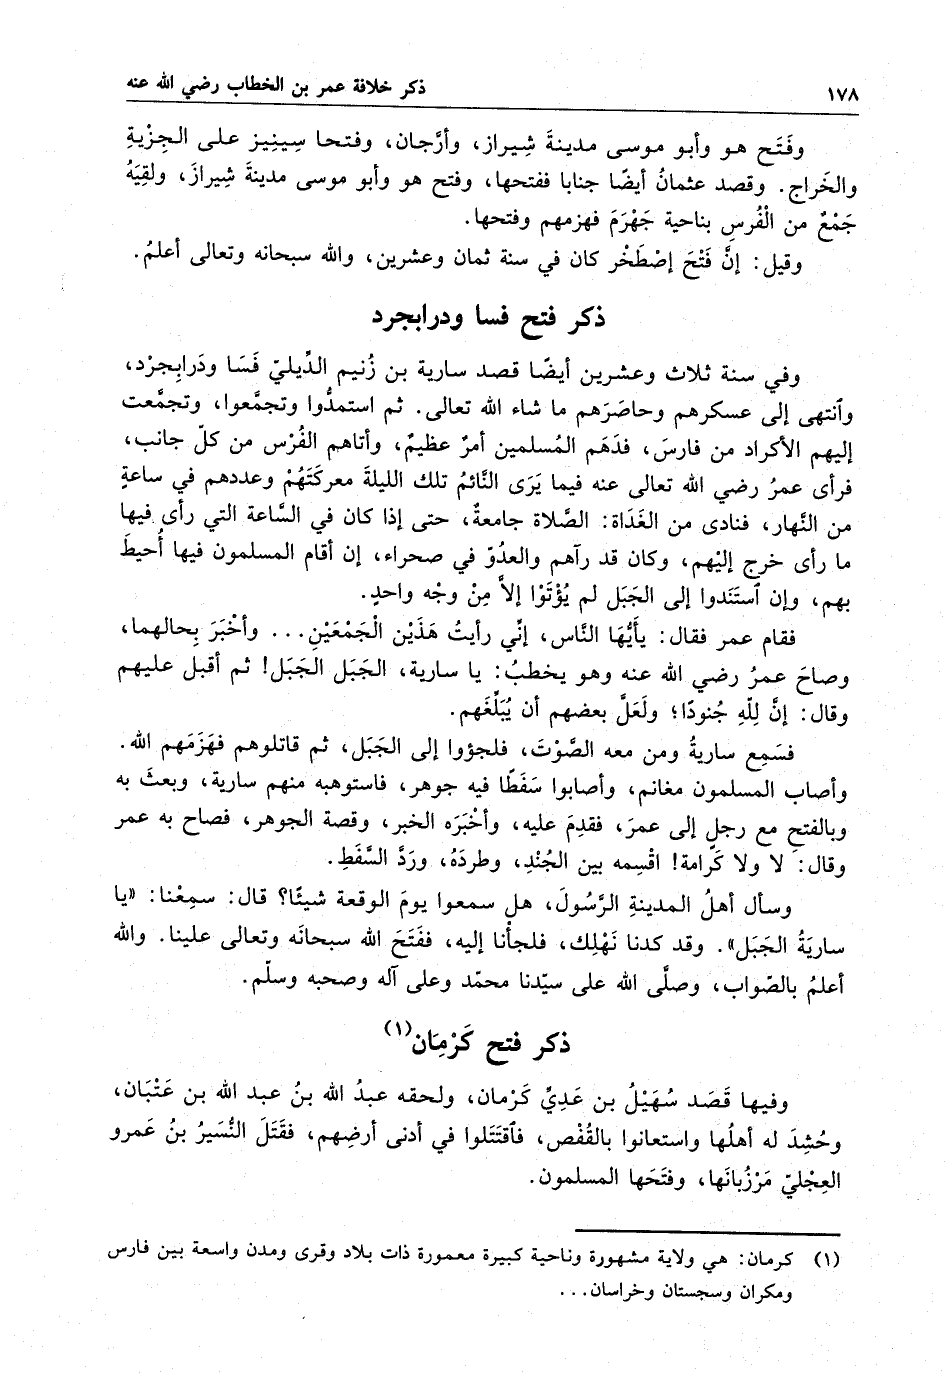 ١٧٨ ذكر خلافة عمر بن الخطاب رضي الله عنه
وفَتَح هو وأبو موسى مدينةَ شِيراز، وأرَّجان، وفتحا سِينِيز على الجِزْيةِ
والخَراج. وقصد عثمانُ أيضًا جنابا ففتحها، وفتح هو وأبو موسى مدينةَ شِيرازَ، ولقِيَهُ
جَمْعٌ من الْفُرسِ بناحية جَهْرَمَ فهزمهم وفتحها.
وقيل: إنَّ فَتْحَ إصْطَخْر كان في سنة ثمان وعشرين، والله سبحانه وتعالى أعلمُ.
ذكر فتح فسا ودرابجرد
وفي سنة ثلاث وعشرين أيضًا قصد سارية بن زُنيم الدِّيليّ فَسَا ودَرابِجرْد،
وٱنتهى إلى عسكرهم وحاصَرَهم ما شاء الله تعالى. ثم استمدُّوا وتجمَّعوا، وتجمَّعت
إليهم الأكراد من فارسَ، فدَهَم المُسلمين أمرٌ عظيمٌ، وأتاهم الفُرْس من كلّ جانب،
فرأى عمرُ رضي الله تعالى عنه فيما يَرَى النَّائمُ تلك الليلةَ معركَتَهُمْ وعددهم في ساعةٍ
من النَّهار، فنادى من الغَدَاة: الصَّلاة جامعةٌ، حتى إذا كان في السَّاعة التي رأى فيها
ما رأى خرج إليْهم، وكان قد رآهم والعدُوّ في صحراء، إن أقام المسلمون فيها أُحيطَ
بهم، وإن ٱستَنَدوا إلى الجَبَل لم يُؤْتَوْا إلاَّ مِنْ وجْه واحدٍ.
فقام عمر فقال: يٰأَيُّهَا النَّاس، إنِّي رأيتُ هَذَيْن الْجَمْعَيْنِ... وأخْبَرَ بِحالهما،
وصاحَ عمرُ رضي الله عنه وهو يخطبُ: يا سارية، الجَبَل الجَبَل! ثم أقبل عليهم
وقال: إنَّ لِلّهِ جُنودًا؛ ولَعَلَّ بعضهم أن يُبَلِّغَهم.
فسَمِع ساريةُ ومن معه الصَّوْتَ، فلجؤوا إلى الجَبَل، ثم قاتلوهم فهَزَمَهم الله.
وأصاب المسلمون مغانم، وأصابوا سَفَطًا فيه جوهر، فاستوهبه منهم سارية، وبعثَ به
وبالفتح مع رجلٍ إلى عمرَ، فقدِمَ عليه، وأخْبَرَه الخبر، وقصة الجوهر، فصاح به عمر
وقال: لا ولا كَرامة! اقْسِمه بين الجُنْدِ، وطردَهُ، وردَّ السَّفَطِ.
وسأل أهلُ المدينةِ الرَّسُولَ، هل سمعوا يومَ الوقعة شيئًا؟ قال: سمِعْنا: «يا
سارِيَةُ الجَبَل». وقد كدنا نَهْلِك، فلجأْنا إليه، ففَتَحَ الله سبحانَه وتعالى علينا. والله
أعلمُ بالصّواب، وصلَّى الله على سيّدنا محمّد وعلى آله وصحبه وسلّم.
ذكر فتح كَرْمِان(١)
وفيها قَصَد سُهَيْلُ بن عَديٍّ كَرْمان، ولحقه عبدُ الله بنُ عبد الله بن عَتْبَان،
وحُشِدَ له أهلُها واستعانوا بالقُفْص، فٱقتَتَلوا في أدنى أرضِهم، فقَتَلَ النُّسَيرُ بنُ عَمرو
العِجْليّ مَرْزُبانَها، وفتَحَها المسلمون.
(١) كرمان: هي ولاية مشهورة وناحية كبيرة معمورة ذات بلاد وقرى ومدن واسعة بين فارس
ومكران وسجستان وخراسان...